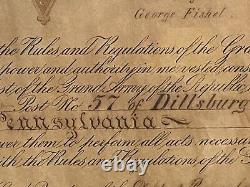 George Fishel
the Rules and Regulations of the Gra
power and authority in me vested, const
st of the Grand Army of the Republic
Post No. 57 of Dillsburg
Pennsylvania
wer them to perform all acts necessar
ith the Rules and Regulations of the